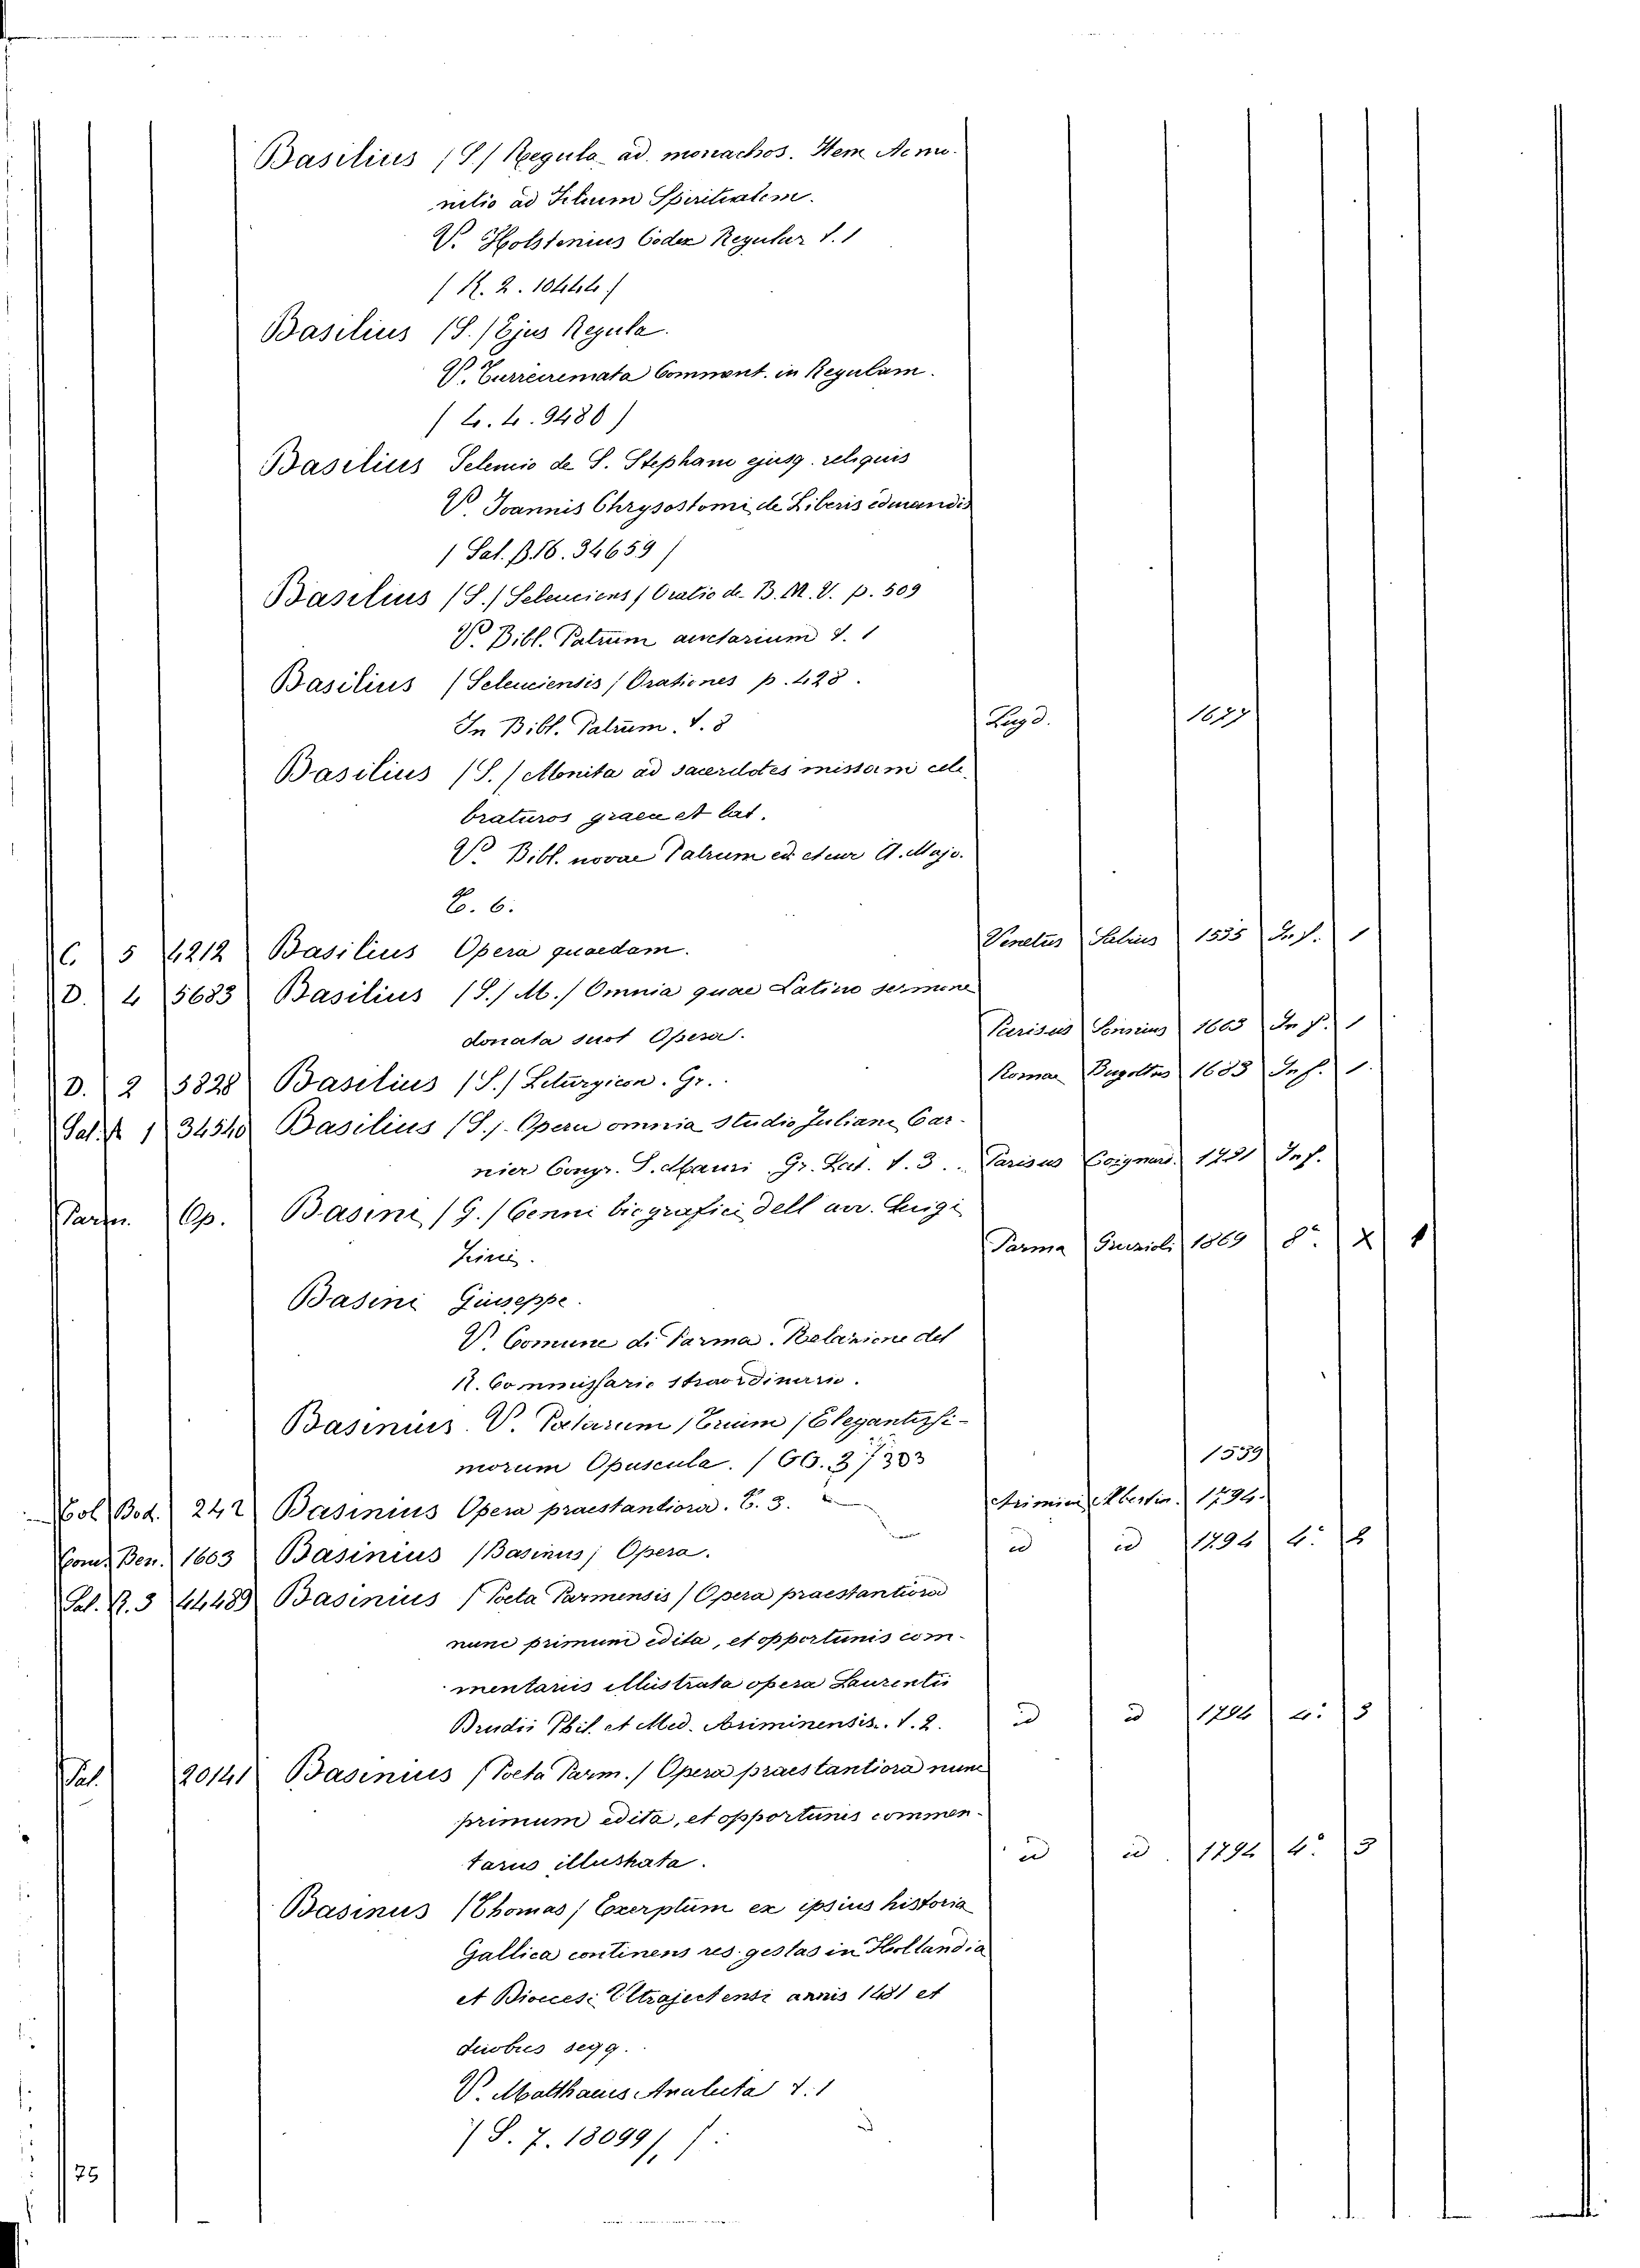 Basilius (S.) Regula ad monachos. Item Acmo-
nitio ad Filium Spiritualem.
V. Holstenius Codex Regular t. 1
( R. 2. 10444.)
Basilius (S.) Ejus Regula.
V. Turrecremata Comment. in Regulam.
( L. 4. 9480)
Basilius Selemio de S. Stephani ejusq. reliquis
V. Joannis Chrysostomi de Liberis educandis
( Sal. B. 16. 34659)
Basilius (S.) Seleuciens) Oratio de B. M. V. p. 509
V. Bibl. Patrum auctarium t. 1
Basilius (Seleuciensis) Orationes p. 428.
In Bibl. Patrum. t. 8 Lugd. 1677
Basilius (S.) Monita ad sacerdotes missam cele-
braturos graece et lat.
V. Bibl. novae Patrum A. Majo.
T. 6.
C. 5 4212 Basilius Opera quaedam. Venetus 1535 In f. 1
D. 4 5683 Basilius (S.) M.) Omnia quae Latino sermone
donata sunt Opera. Parisus 1603 In f. 1
D. 2 5828 Basilius (S.) Leturgicon. Gr. Romae 1683 In f. 1
Sal. 1 34540 Basilius (S.) Opera omnia studio Juliani Gar-
nier Congr. S. Mauri Gr. Lat. t. 3. Parisus Coignard 1721 In f.
Parm. Op. Basini (G.) Cenni biografici dell avv. Luigi
Parma Grazioli 1869 8° X 1
Basini Giuseppe.
V. Comune di Parma. Relazione del
R. Commissario straordinario.
Basinius V. Trium Elegantissi-
morum Opuscula. ( GG. 3 7303 1539
Col Bod. 242 Basinius Opera praestantiora. T. 3. Arimini Albertin. 1794.
Com. Ben. 1603 Basinius (Basinus) Opera. id id 1794 4° 2
Sal. R. 3 44489 Basinius (Poeta Parmensis) Opera praestantiora
nunc primum edita, et opportunis com-
mentariis illustrata opera Laurentii
Brudii Phil. et Med. Ariminensis. t. 2. id id 1794 4° 3
Pal. 20141 Basinius (Poeta Parm.) Opera praestantiora nunc
primum edita, et opportunis commen-
tarus illustrata. id id. 1794 4° 3
Basinus (Thomas) Exerptum ex ipsius historia
Gallica continens res gestas in Hollandia
et Diocesi Ultrajectensi annis 1481 et
duobus segg.
V. Matthaeus Analecta t. 1
( S. 7. 13099)
75